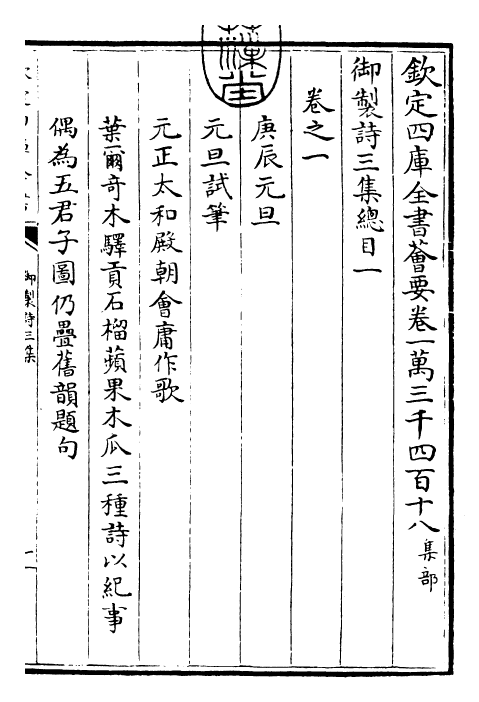 欽定四庫全書薈要卷一萬三千四百十八 集部
御製詩三集總目一
卷之一
庚辰元旦
元旦試筆
元正太和殿朝會庸作歌
葉爾竒木驛貢石榴蘋果木瓜三種詩以紀事
偶為五君子圖仍疊舊韻題句
御製詩三集